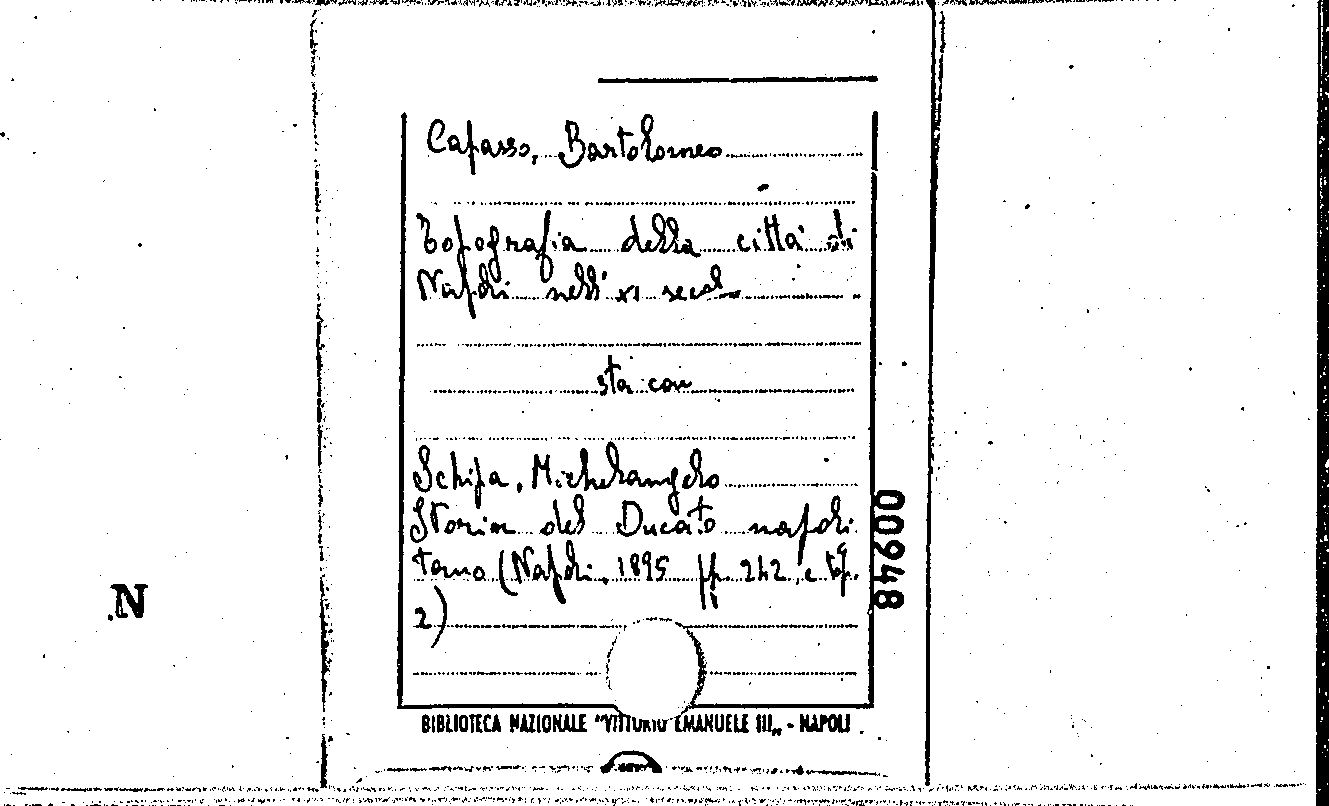 Capasso, Bartolomeo
Topografia della città di
Napoli nell'XI secolo
sta con
Schipa, Michelangelo
Storia del Ducato napoli
tano (Napoli, 1895 pp. 242, e
2)
00948
N
BIBLIOTECA NAZIONALE "VITTORIO EMANUELE III„ - NAPOLI